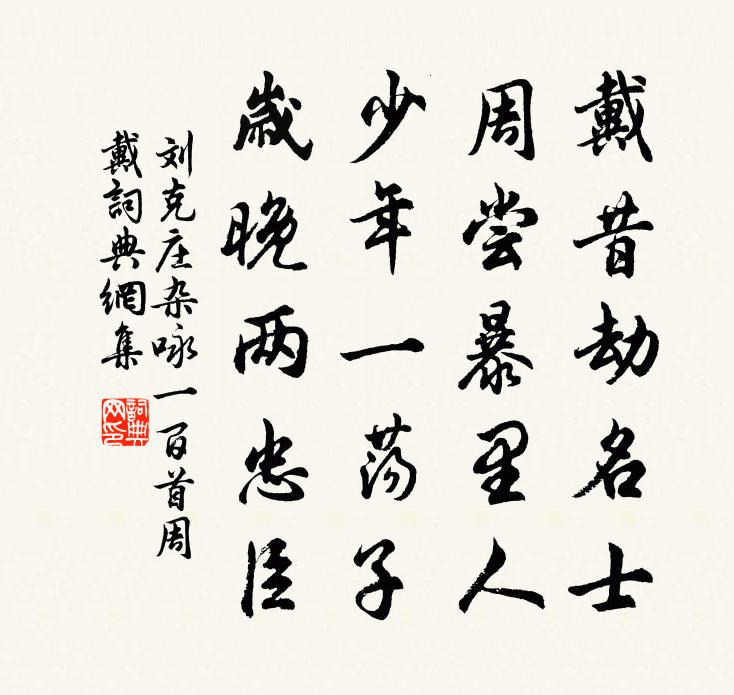 戴昔劫名士
周尝暴里人
少年一荡子
歳晚两忠臣
刘克庄杂咏一百首周
戴詞典網集
詞典网印